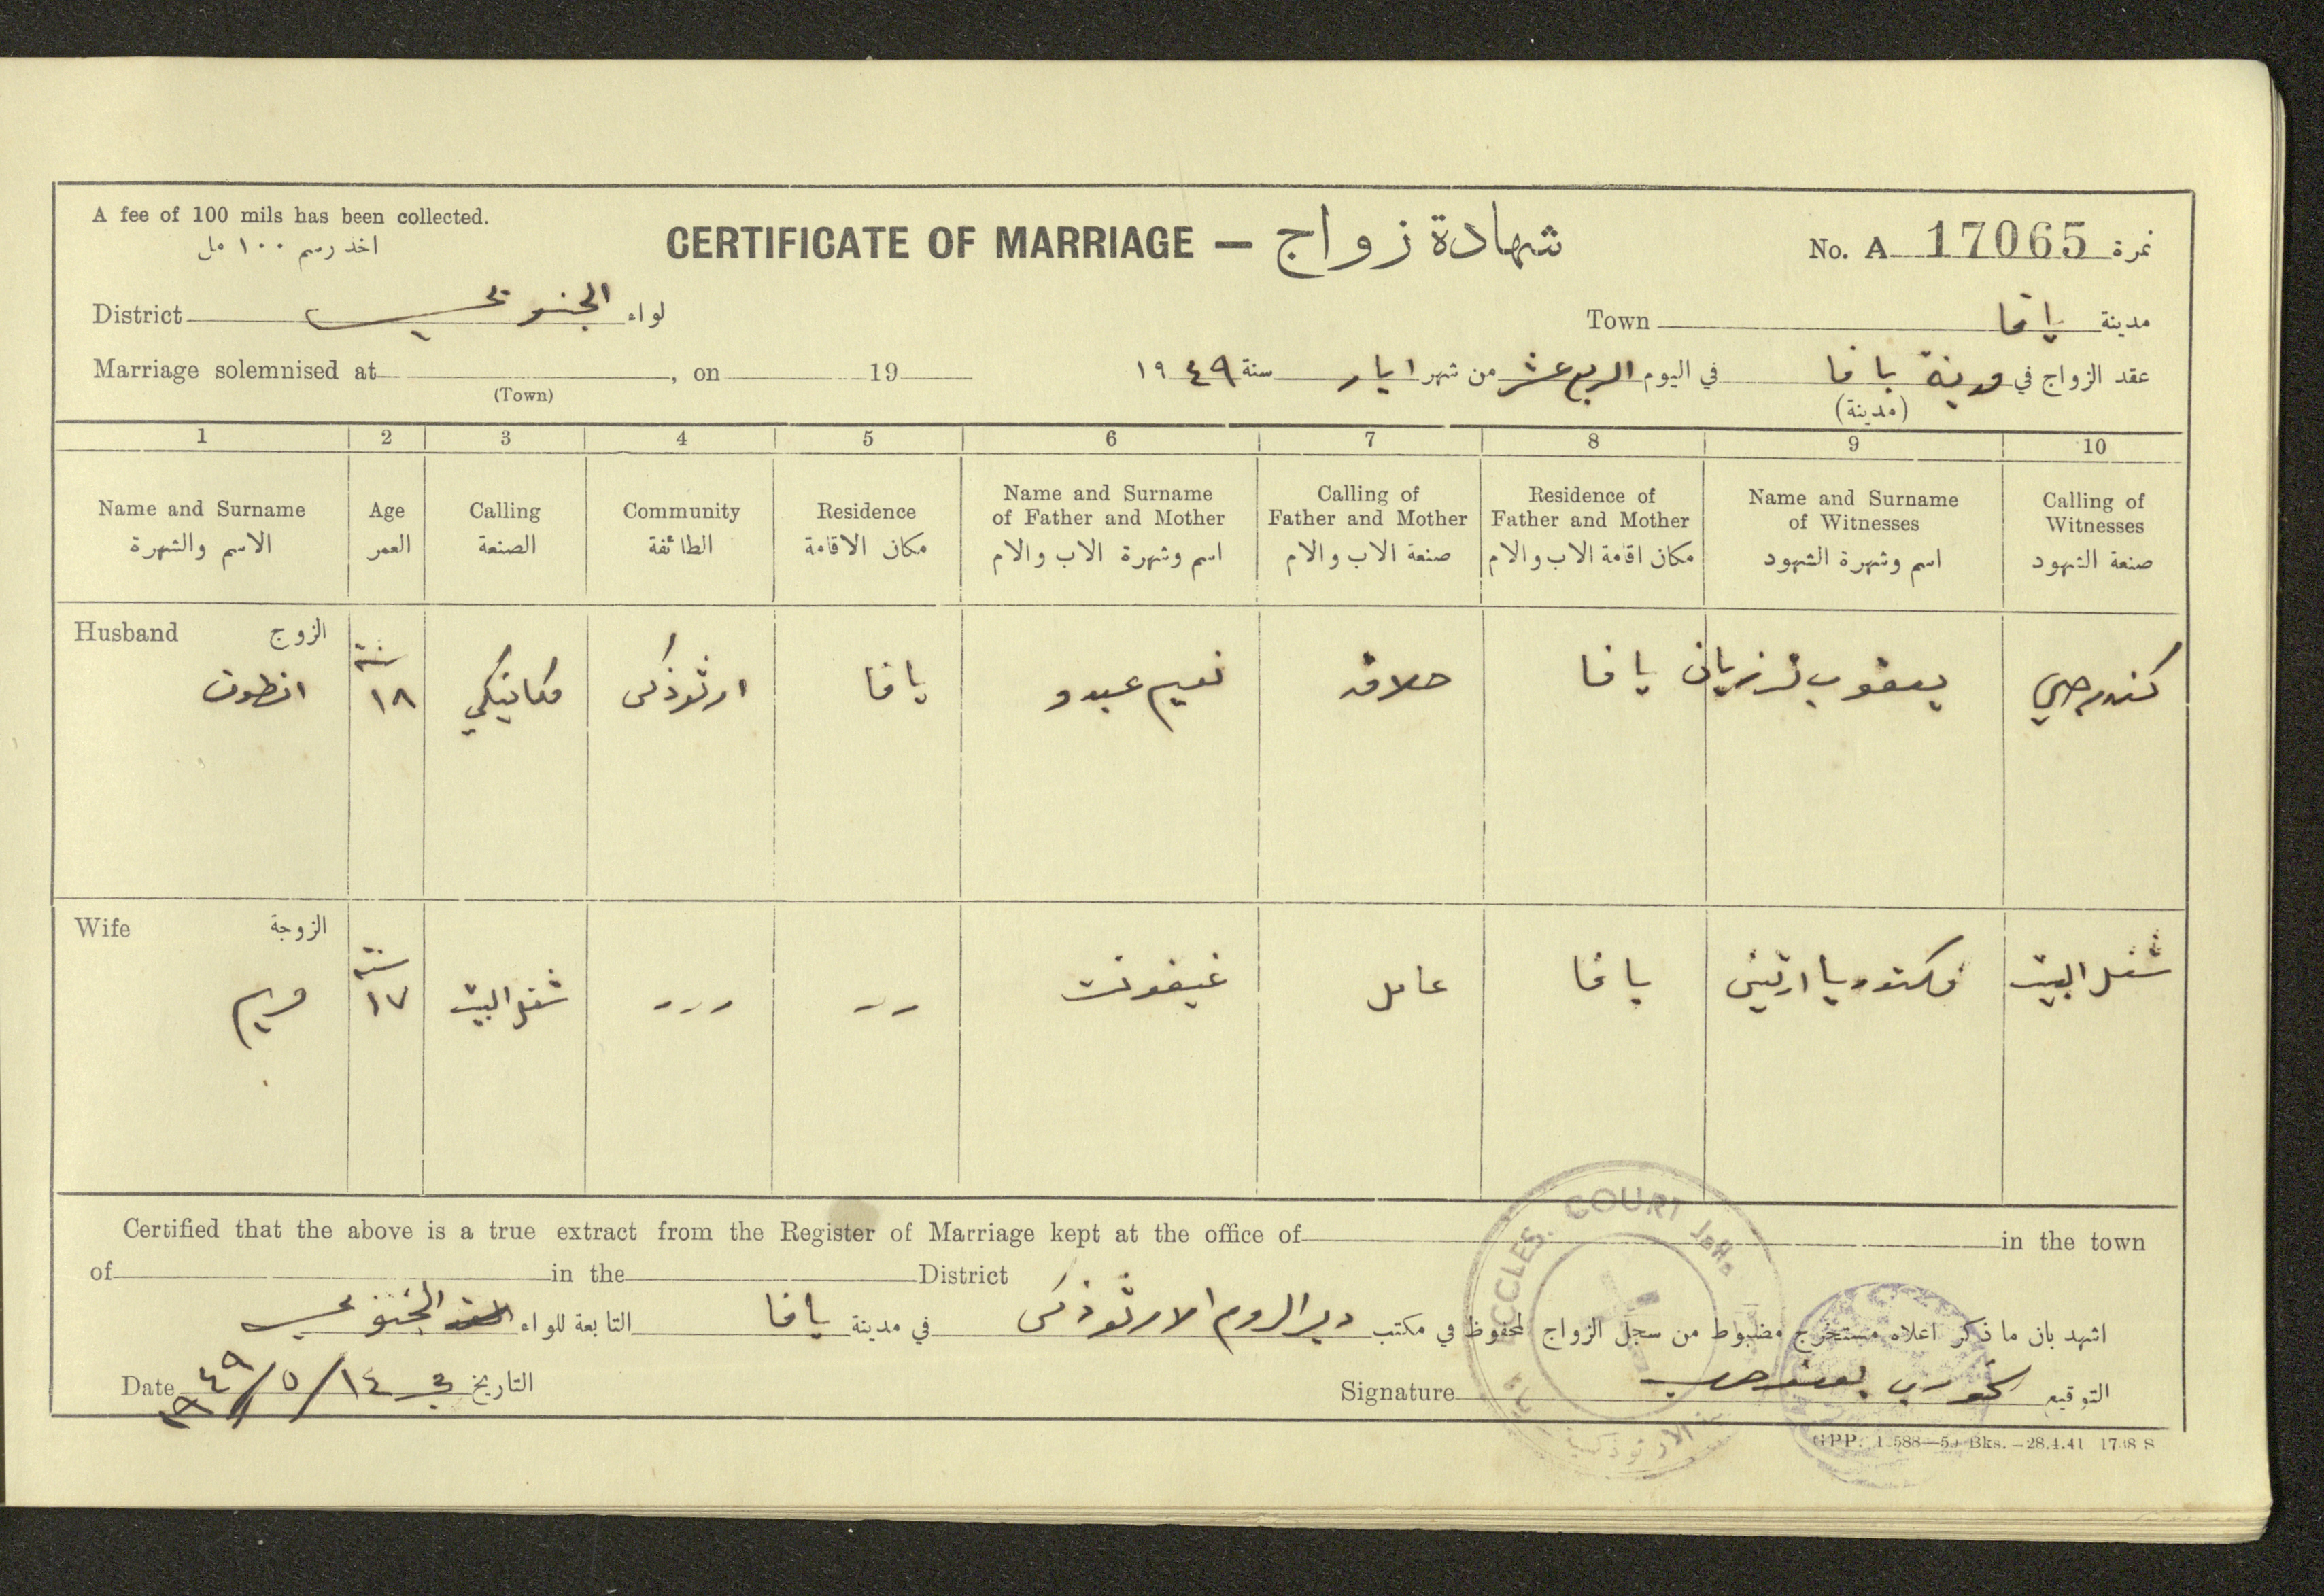 A fee of 100 mils has been collected.
اخذ رسم ١٠٠ مل
CERTIFICATE OF MARRIAGE — شهادة زواج
No. A 17065 نمرة
District الجنوبي لواء
Town يافا مدينة
Marriage solemnised at , on 19
(Town)
عقد الزواج في مدينة يافا في اليوم الربع عشر من شهر ايار سنة ١٩٤٩
(مدينة)
1 2 3 4 5 6 7 8 9 10
Name and Surname
الاسم والشهرة
Age
العمر
Calling
الصنعة
Community
الطائفة
Residence
مكان الاقامة
Name and Surname
of Father and Mother
اسم وشهرة الاب والام
Calling of
Father and Mother
صنعة الاب والام
Residence of
Father and Mother
مكان اقامة الاب والام
Name and Surname
of Witnesses
اسم وشهرة الشهود
Calling of
Witnesses
صنعة الشهود
Husband الزوج
انطون
سنة
١٨
مكانيكي
ارثوذكسي
يافا
نعيم عبدو
حلاق
يافا
يعقوب
كندرجي
Wife الزوجة
مريم
سنة
١٧
شغل البيت
عامل
يافا
فكتوريا
شغل البيت
Certified that the above is a true extract from the Register of Marriage kept at the office of in the town
of in the District
اشهد بان ما ذكر اعلاه مستخرج مضبوط من سجل الزواج المحفوظ في مكتب دير الروم الارثوذكس في مدينة يافا التابعة للواء الجنوبي
Date ٤٩/٥/١٤ في التاريخ
Signature الخوري التوقيع
ECCLES. COURT Jaffa
28.4.41